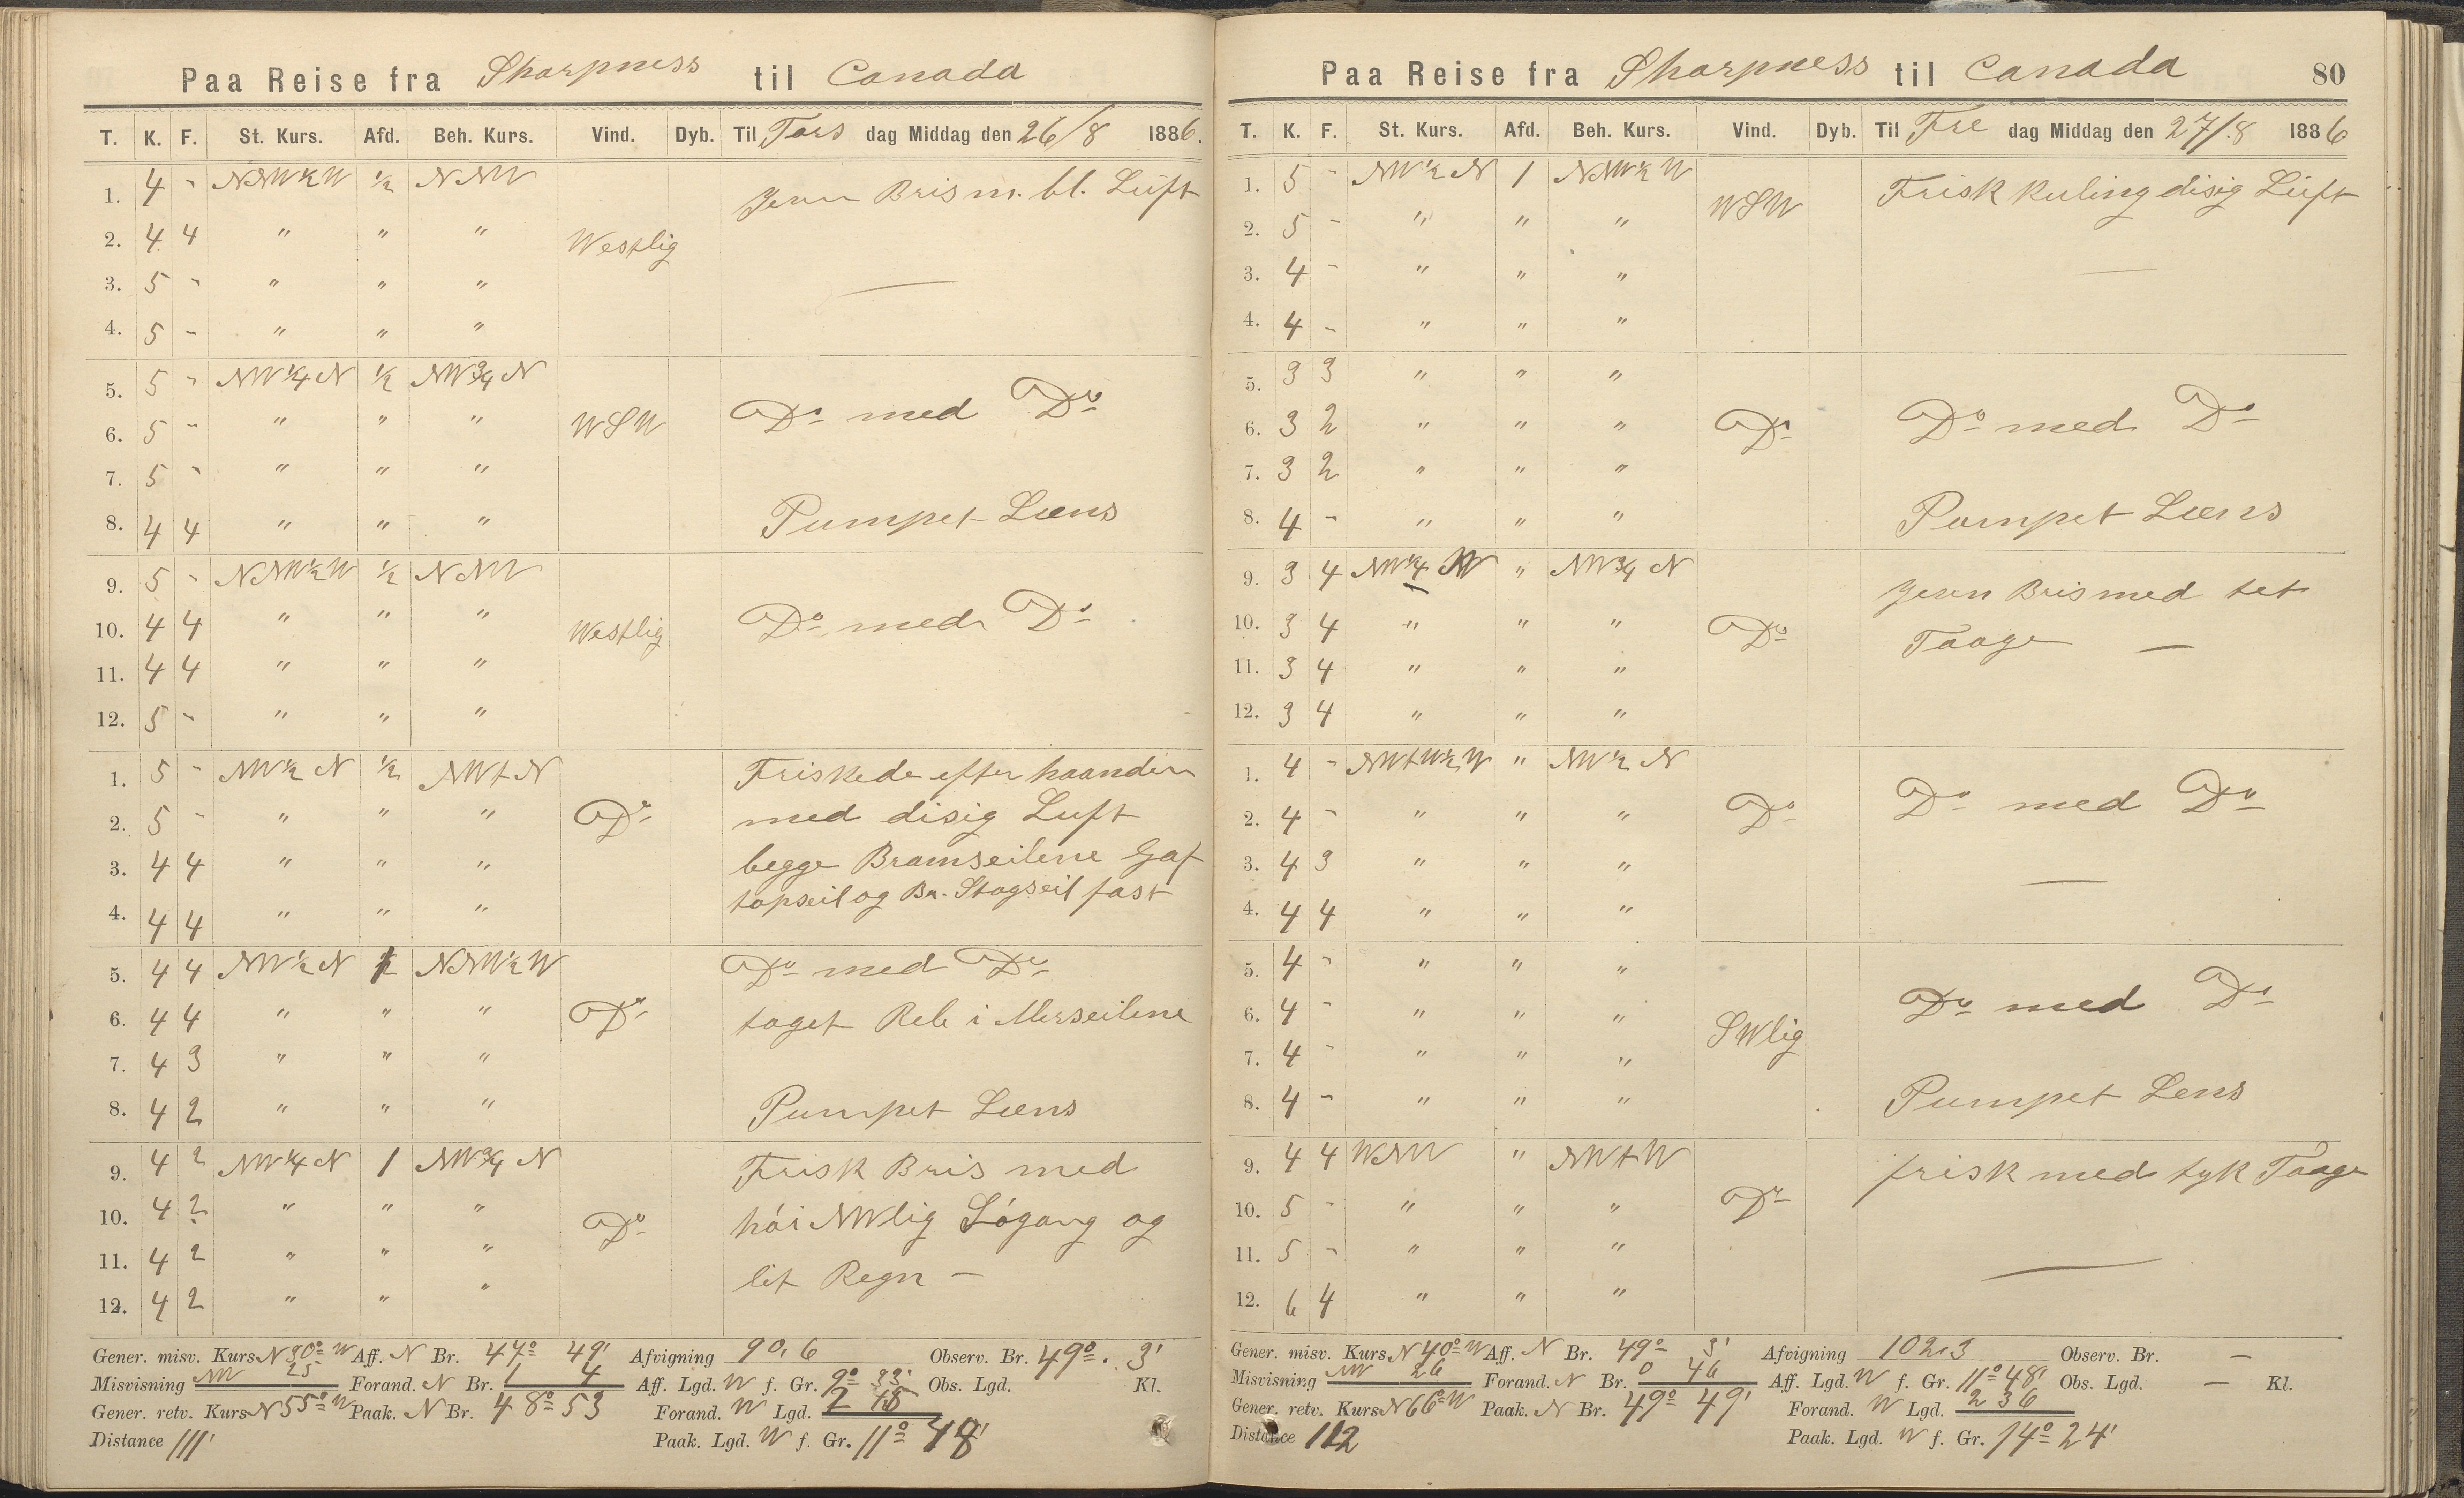 Paa Reise fra Sharpness til Canada
T. K. F. St. Kurs. Afd. Beh. Kurs. Vind. Dyb. Til Tors dag Middag den 26/8 1886.
1. 4 - NNW½W ½ NNW Jevn Bris m. bl. Luft
2. 4 4 " " " Westlig
3. 5 - " " " —
4. 5 - " " "
5. 5 - NW¼N ½ NW¾N
6. 5 - " " " WSW Do med Do
7. 5 - " " "
8. 4 4 " " " Pumpet Læns
9. 5 - NNW½W ½ NNW
10. 4 4 " " " Westlig Do med Do
11. 4 4 " " "
12. 5 - " " "
1. 5 - NW½N ½ NWtN Friskede efter haanden
2. 5 - " " " Do med disig Luft
3. 4 4 " " " begge Bramseilene Gaf
4. 4 4 " " " topseil og Br. Stagseil fast
5. 4 4 NW½N ½ NNW½W Do med Do
6. 4 4 " " " Do taget Reb i Merseilene
7. 4 3 " " "
8. 4 2 " " " Pumpet Læns
9. 4 2 NW¼N 1 NW¾N Frisk Bris med
10. 4 2 " " " Do hói NWlig Sógang og
11. 4 2 " " " lit Regn —
12. 4 2 " " "
Gener. misv. Kurs N 30° W Aff. N Br. 47° 49' Afvigning 90,6 Observ. Br. 49°. 3'
Misvisning NW 25 Forand. N Br. 1 4 Aff. Lgd. W f. Gr. 9° 33' Obs. Lgd. Kl.
Gener. retv. Kurs N 55° W Paak. N Br. 48° 53 Forand. W Lgd. 2 15
Distance 111' Paak. Lgd. W f. Gr. 11° 48'
Paa Reise fra Sharpness til Canada 80
T. K. F. St. Kurs. Afd. Beh. Kurs. Vind. Dyb. Til Fre dag Middag den 27/8 1886
1. 5 - NW½N 1 NNW½W WSW Frisk kuling disig Luft
2. 5 - " " "
3. 4 - " " " —
4. 4 - " " "
5. 3 3 " " "
6. 3 2 " " " Do Do med Do
7. 3 2 " " "
8. 4 - " " " Pumpet Læns
9. 3 4 NW¼W " NW¾N Jevn Bris med tet
10. 3 4 " " " Do Taage —
11. 3 4 " " "
12. 3 4 " " "
1. 4 - NWtW½W " NW½N
2. 4 - " " " Do Do med Do
3. 4 3 " " " —
4. 4 4 " " "
5. 4 - " " "
6. 4 - " " " SWlig Do med Do
7. 4 - " " "
8. 4 - " " " Pumpet Lens
9. 4 4 WNW " NWtW frisk med tyk Taage
10. 5 - " " " Do
11. 5 - " " " —
12. 6 4 " " "
Gener. misv. Kurs N 40° W Aff. N Br. 49° 3' Afvigning 102,3 Observ. Br. —
Misvisning NW 26 Forand. N Br. 0 46 Aff. Lgd. W f. Gr. 11° 48' Obs. Lgd. — Kl.
Gener. retv. Kurs N 66° W Paak. N Br. 49° 49' Forand. W Lgd. 2 36
Distance 112 Paak. Lgd. W f. Gr. 14° 24'